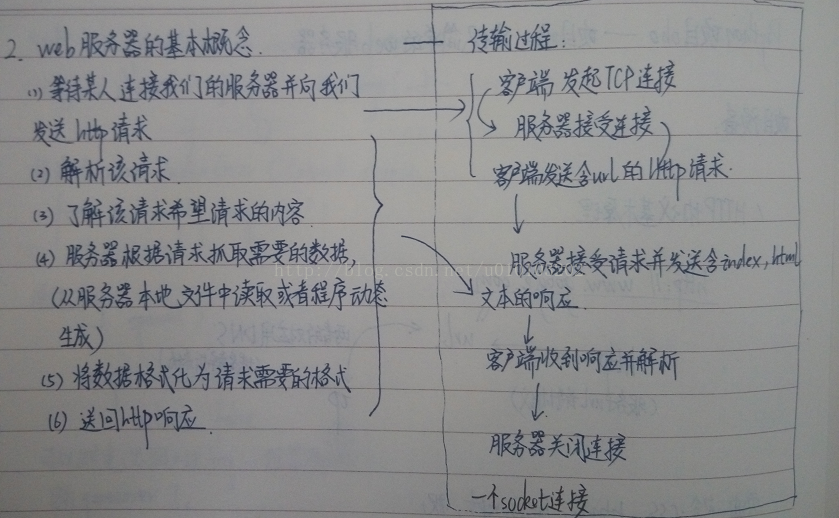 2. web服务器的基本概念.
(1) 等待某人连接我们的服务器并向我们
发送http请求
(2) 解析该请求.
(3) 了解该请求希望请求的内容.
(4) 服务器根据请求抓取需要的数据,
(从服务器本地文件中读取或者程序动态
生成)
(5) 将数据格式化为请求需要的格式
(6) 送回http响应.
传输过程:
客户端发起TCP连接
服务器接受连接
客户端发送含url的http请求.
服务器接受请求并发送含index,html
文本的响应.
客户端收到响应并解析
服务器关闭连接
一个socket连接